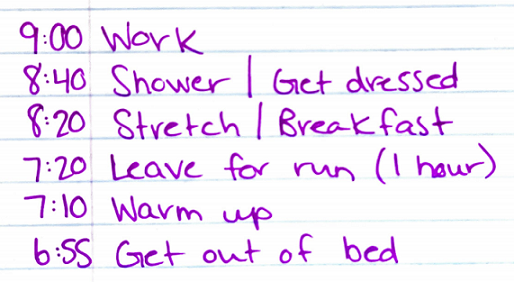 9:00 Work
8:40 Shower | Get dressed
8:20 Stretch | Breakfast
7:20 Leave for run (1 hour)
7:10 Warm up
6:55 Get out of bed